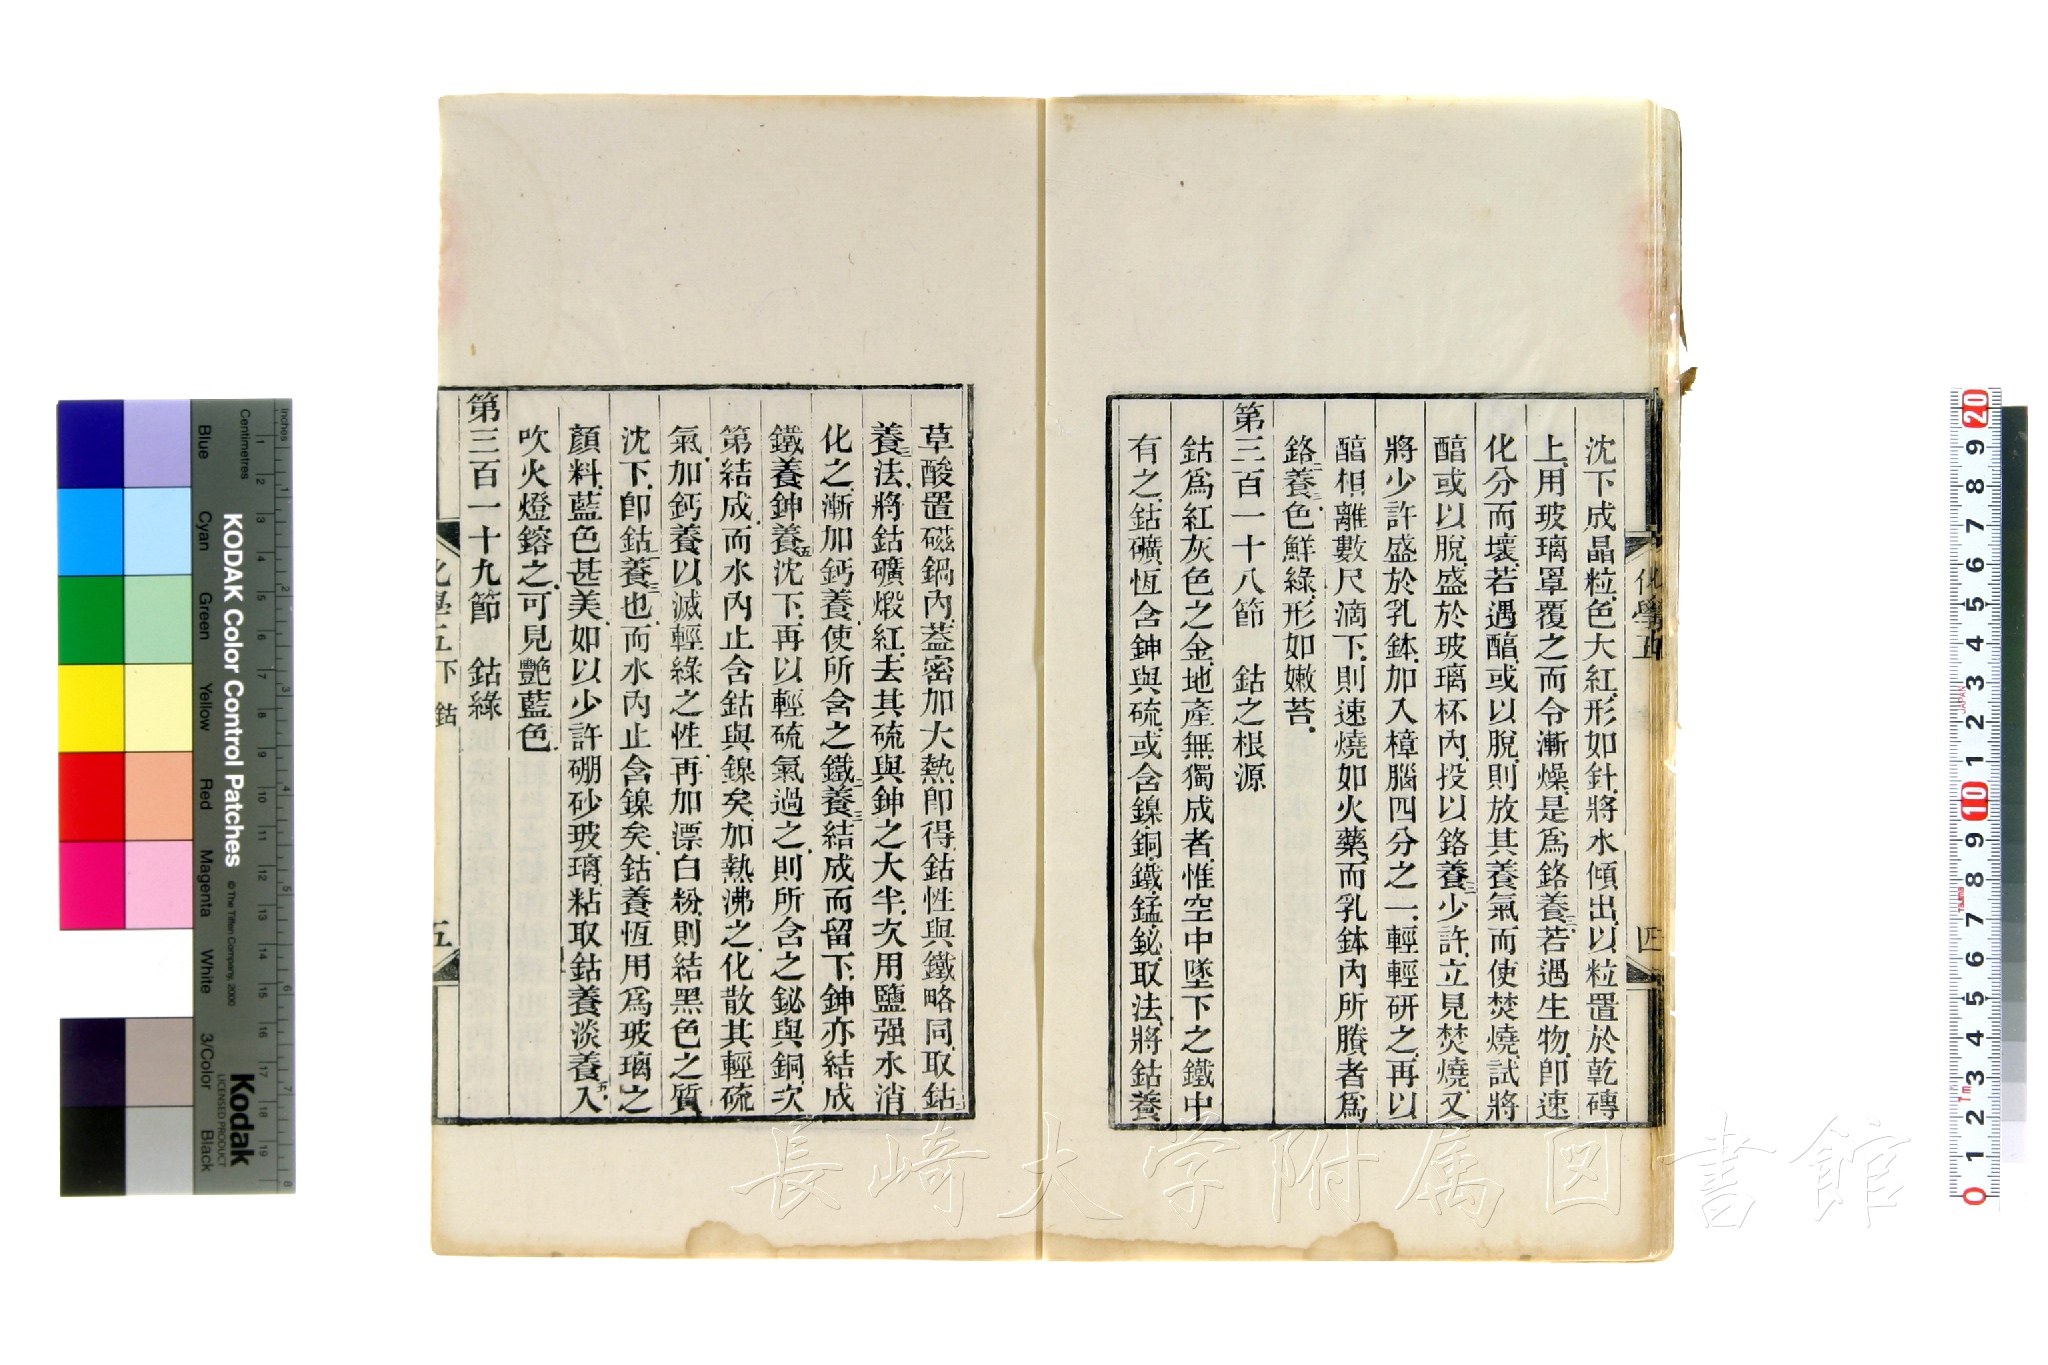 沈下成晶粒色大紅形如針將水傾出以粒置於乾磚
上用玻璃罩覆之而令漸燥是爲鉻養三若遇生物卽速
化分而壞若遇醕或以脫則放其養氣而使焚燒試將
醕或以脫盛於玻璃杯內投以鉻養三少許立見焚燒又
將少許盛於乳鉢加入樟腦四分之一輕輕研之再以
醕相離數尺滴下則速燒如火藥而乳鉢內所賸者爲
鉻二養三色鮮綠形如嫩苔
第三百一十八節 鈷之根源
鈷爲紅灰色之金地產無獨成者惟空中墜下之鐵中
有之鈷礦恆含鉮與硫或含鎳銅鐵錳鉍取法將鈷養
化學五
四
草酸置磁鍋內蓋密加大熱卽得鈷性與鐵略同取鈷二
養三法將鈷礦煅紅去其硫與鉮之大半次用鹽强水消
化之漸加鈣養使所含之鐵二養三結成而留下鉮亦結成
鐵養鉮養五沈下再以輕硫氣過之則所含之鉍與銅次
第結成而水內止含鈷與鎳矣加熱沸之化散其輕硫
氣加鈣養以滅輕綠之性再加漂白粉則結黑色之質
沈下卽鈷二養三也而水內止含鎳矣鈷養恆用爲玻璃之
顏料藍色甚美如以少許硼砂玻璃粘取鈷養淡養五入
吹火燈鎔之可見艷藍色
第三百一十九節 鈷綠
化學五下 鈷
五
長崎大学附属図書館
KODAK Color Control Patches
© The Tiffen Company, 2000
Kodak
LICENSED PRODUCT
Inches
Centimetres
Blue
Cyan
Green
Yellow
Red
Magenta
White
3/Color
Black
1 2 3 4 5 6 7 8
1 2 3 4 5 6 7 8 9 10 11 12 13 14 15 16 17 18 19
20 9 8 7 6 5 4 3 2 1 10 9 8 7 6 5 4 3 2 1 0
JAPAN
7m